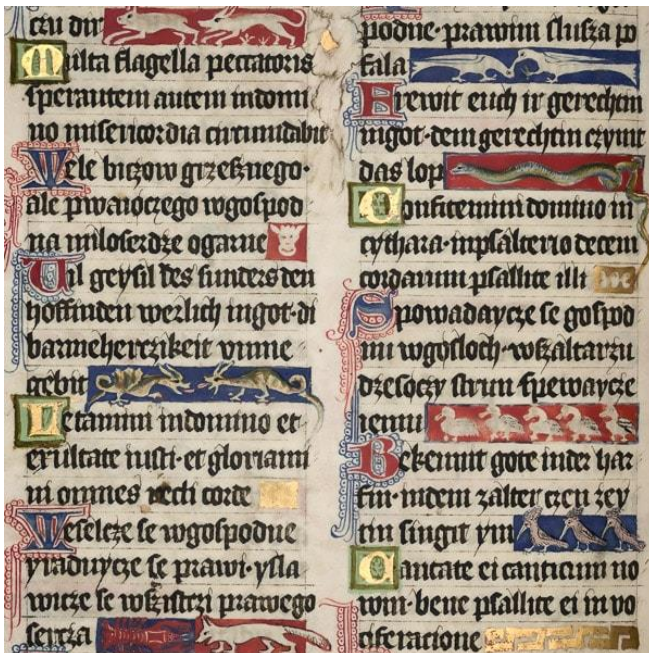 czu dir
Multa flagella peccatoris
sperantem autem indomi
no misericordia circumdabit
Wele biczow grzesznego·
ale pwaioczego wgospod
na miloserdze ogarne
Vil geysil des sunders den
hoffinden werlich ingot·di
barmeherczikeit umme
gebit
Letamini indomino et
exultate iusti·et gloriami
ni omnes recti corde
Weselcze se wgospodne
yraduycze se prawi·ysla
wicze se wszistczi prawego
sercza
podne·prawim slusza po
fala
Frewit euch ir gerechtin
ingot·dem gerechtin czymt
das lop
Confitemini domino in
cythara·inpsalterio decem
cordarum psallite illi
Spowadaycze se gospod
nu wgosloch·wszaltarzu
dzesoczy strun spewaycze
iemu
Bekennit gote inder har
fin·indem zalter czen zey
tin singit ym
Cantate ei canticum no
vum·bene psallite ei in vo
ciferacione